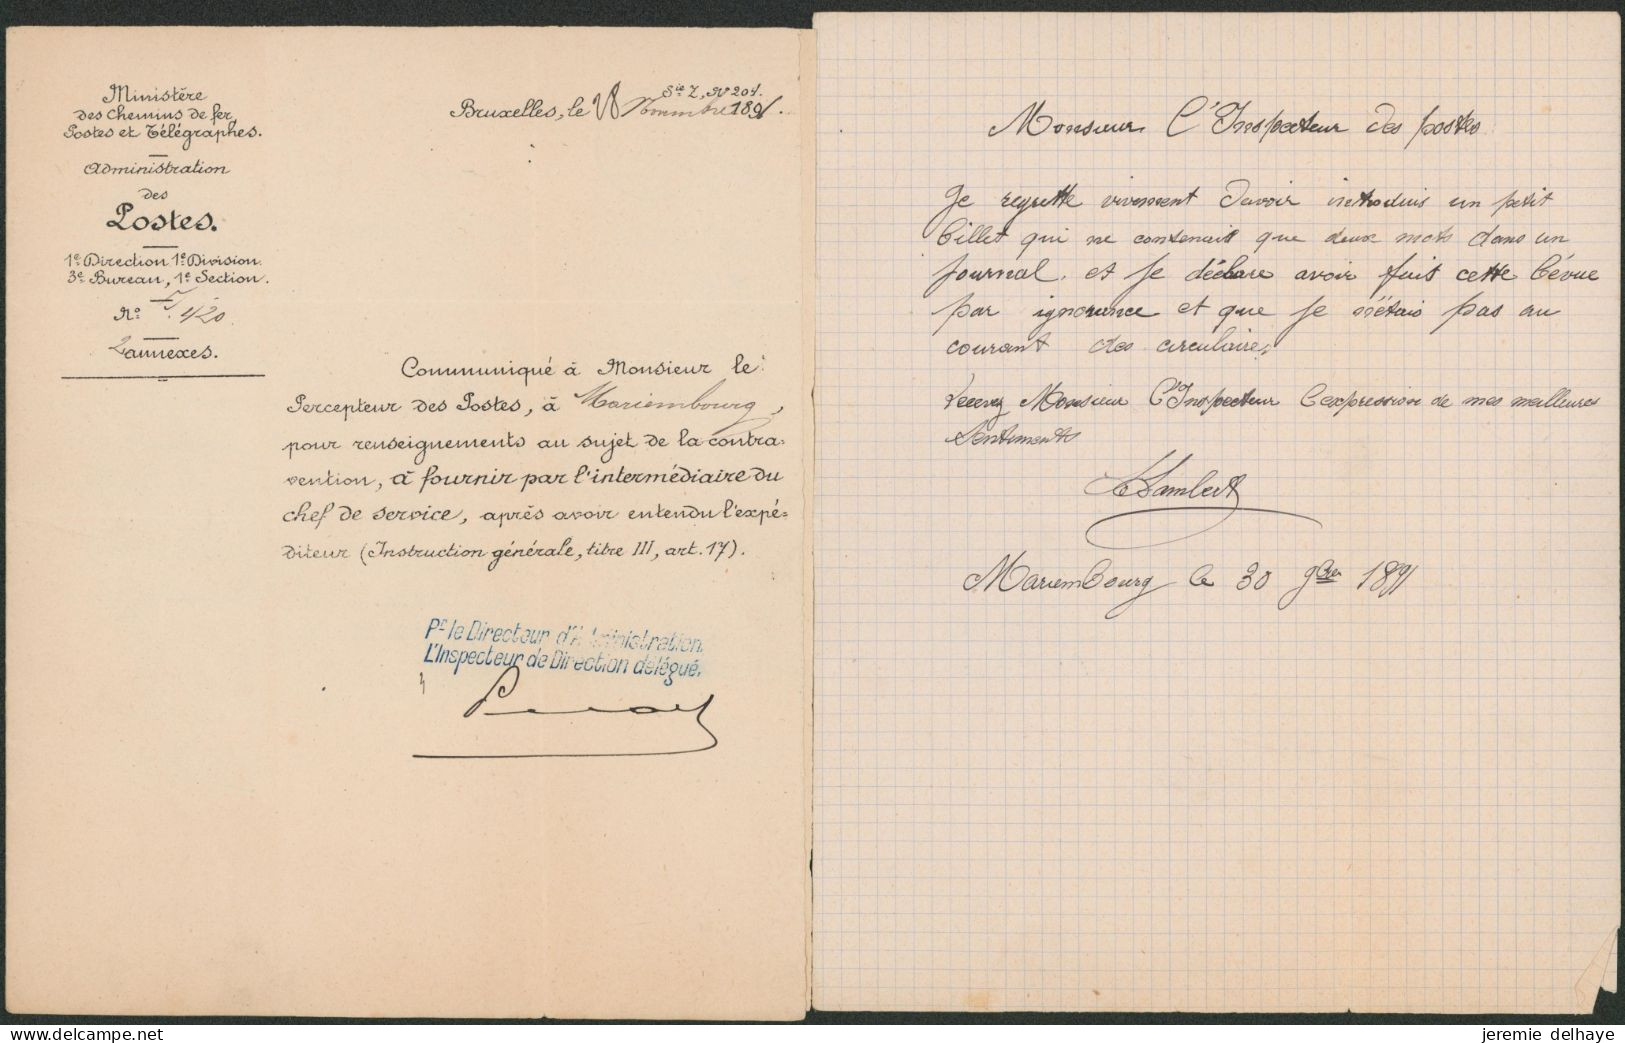 Ministère
des Chemins de fer,
Postes et Télégraphes.
Administration
des
Postes.
1e Direction 1e Division.
3e Bureau, 1e Section.
No 420
2 annexes.
Sie Z, No 201.
Bruxelles, le 28 Novembre 1891.
Communiqué à Monsieur le
Percepteur des Postes, à Mariembourg,
pour renseignements au sujet de la contra-
vention, à fournir par l'intermédiaire du
chef de service, après avoir entendu l'expé-
diteur (Instruction générale, titre III, art. 17).
Pr le Directeur d'Administration,
L'Inspecteur de Direction délégué,
Monsieur L'Inspecteur des postes
Je regrette vivement d'avoir introduis un petit
billet qui ne contenait que deux mots dans un
journal. et je déclare avoir fait cette bévue
par ignorance et que je n'étais pas au
courant des circulaires.
Recevez Monsieur L'Inspecteur l'expression de mes meilleures
sentiments
Lambert
Mariembourg le 30 9bre 1891
jeremie delhaye